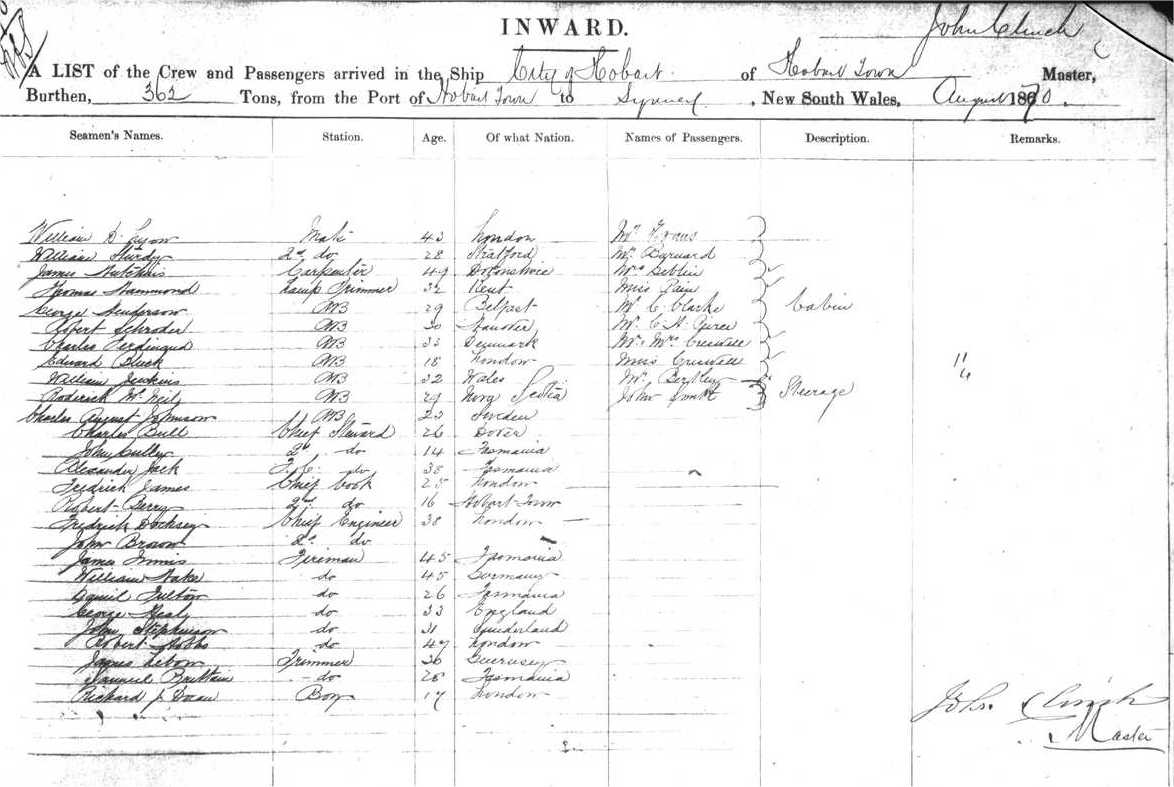 INWARD.
John Clinch
A LIST of the Crew and Passengers arrived in the Ship City of Hobart of Hobart Town Master,
Burthen, 362 Tons, from the Port of Hobart Town to Sydney, New South Wales, August 1870.
Seamen's Names. Station. Age. Of what Nation. Names of Passengers. Description. Remarks.
William D. Mate 43 London Mr Evans
William Sturdy 2nd do 28 Stratford Mr Burnard
James Hutchins Carpenter 49 Devonshire Mrs
Thomas Hammond Lamp Trimmer 32 Kent Miss Pain
George Henderson AB 29 Belfast Mr C Clarke Cabin
Robert Schroder AB 30 Hanover Mr C. A. Pierce
Charles Ferdinand AB 33 Denmark Mr & Mrs Creswell
Edward Black AB 18 London Miss Creswell 11
William Jenkins AB 32 Wales Mr
Roderick McNeil AB 29 Nova Scotia John Steerage
Charles August Johnson AB 23 Sweden
Charles Bull Chief Steward 26 Dover
John Culley 2nd do 14 Tasmania
Alexander Jack F. C. do 38 Tasmania
Fredrick James Chief Cook 25 London
Robert Berry 2nd do 16 Hobart Town
Fredrick Docksey Chief Engineer 38 London
John Brown 2nd do
James Innis Fireman 45 Tasmania
William do 45 Germany
Daniel Fulton do 26 Tasmania
George Healy do 33 England
John Stephenson do 31 Sunderland
Robert Hobbs do 47 London
James Trimmer 30 Guernsey
Samuel Brittain do 28 Tasmania
Richard J. Boy 17 London
Jno. Clinch
Master